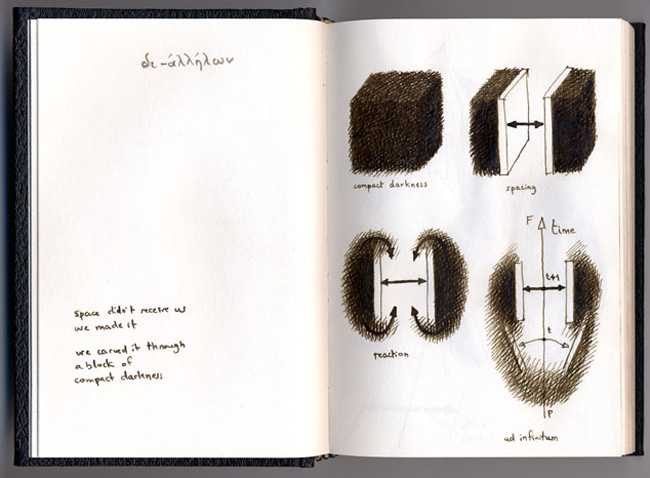 δι-ἀλλήλων
space didn't receive us
we made it
we carved it through
a block of
compact darkness;
compact darkness
spacing
reaction
F
time
t+1
t
P
ad infinitum